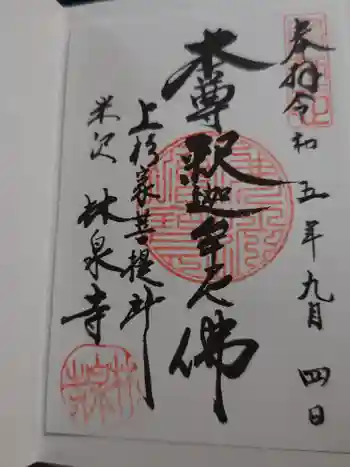 奉拝
令和五年九月四日
本尊釈迦牟尼佛
上杉家菩提所
米沢
林泉寺